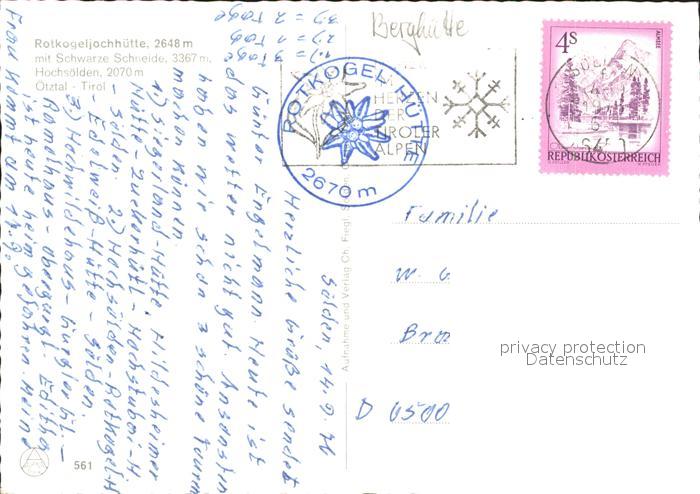 Berghütte
Rotkogeljochhütte, 2648 m
mit Schwarze Schneide, 3367 m,
Hochsölden, 2070 m
Ötztal - Tirol
1.) 3 Tage
2.) 1 Tag
3.) 2 Tage
ROTKOGEL-HÜTTE
2670 m
HERZEN
DER
TIROLER
ALPEN
4S
ALMSEE
REPUBLIK ÖSTERREICH
Sölden, 14.9.76
Herzliche Grüße sendet
Günter Engelmann. Heute ist
das Wetter nicht gut. Ansonsten
haben wir schon 3 schöne Touren
machen können.
1.) Siegerland-Hütte, Hildesheimer
Hütte - Zuckerhütl - Hochstubai-H
- Sölden. 2.) Hochsölden - Rotkogel-H
- Edelweiß-Hütte - Sölden.
3.) Hochwildehaus -
Ramolhaus - Obergurgl. Editha
ist heute heimgefahren. Meine
Frau kam an
Familie
W. G.
D 6500
Aufnahme und Verlag Ch. Fiegl, Sölden
561
privacy protection
Datenschutz